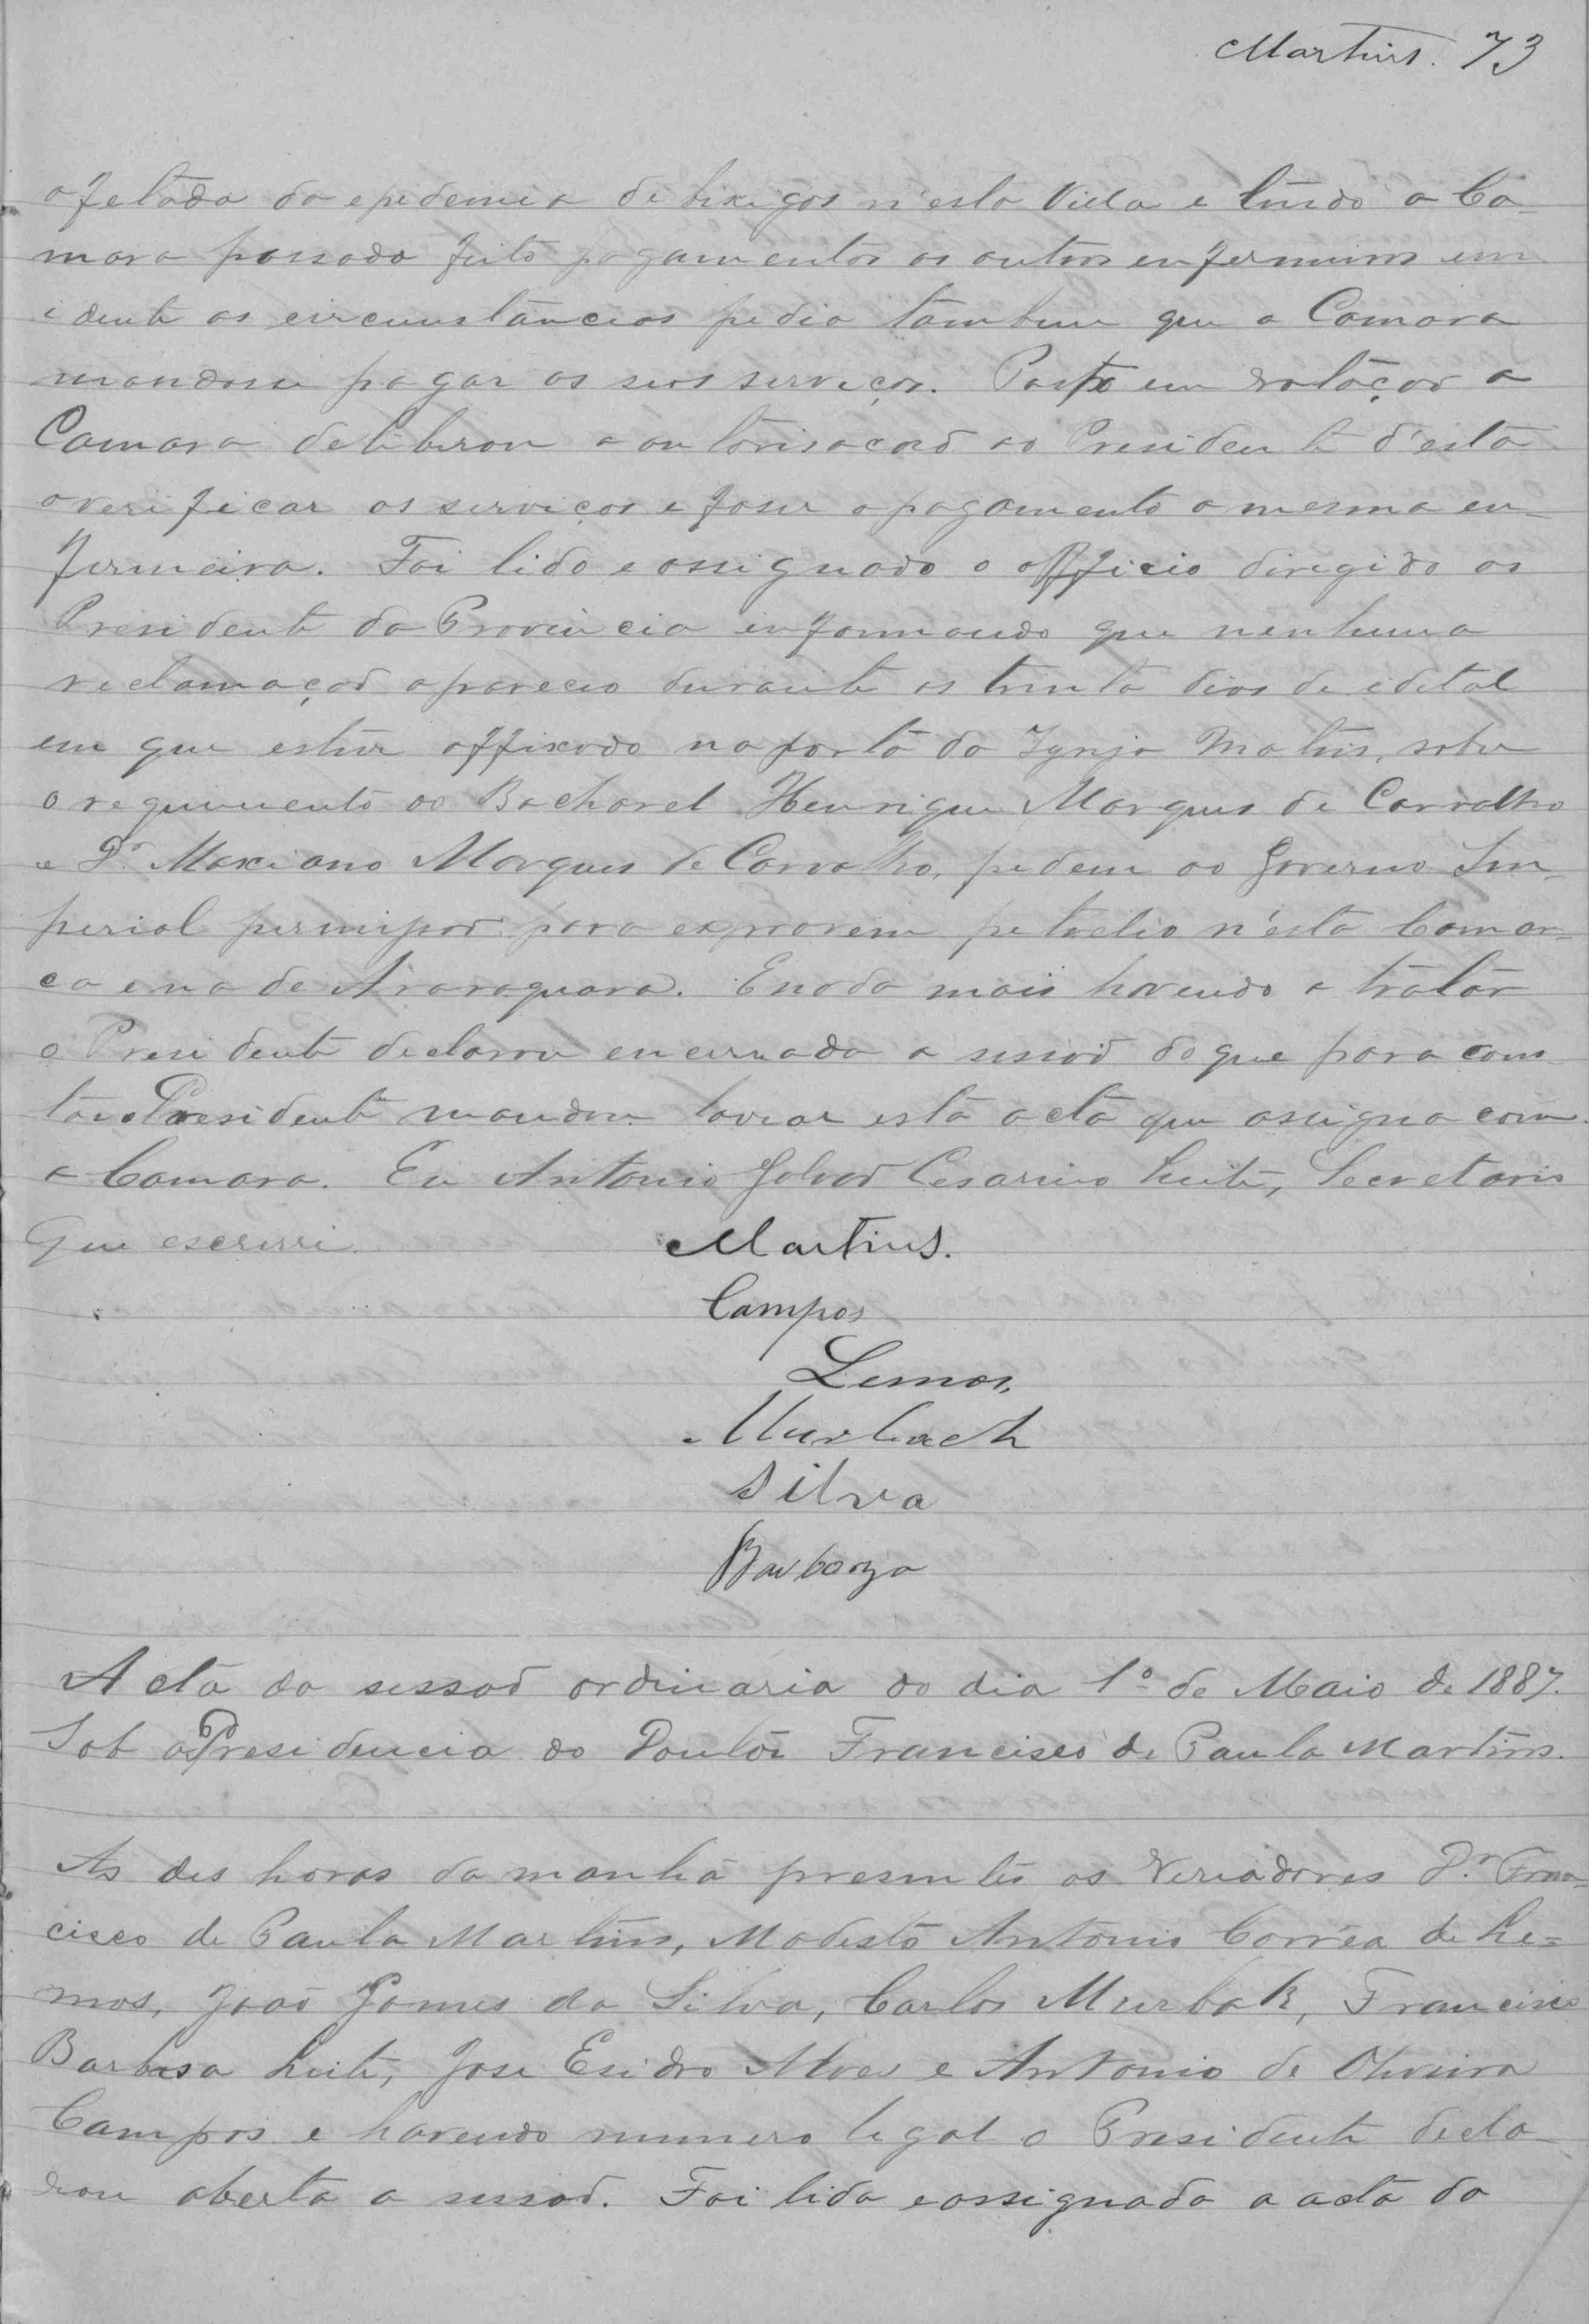 Martins. 73
afetada da epedemia de bixigas n'esta Villa e tendo a Ca-
mara passada feito pagamentos as outras enfermeiras em
identicas circunstancias pedia tambem que a Camara
mandasse pagar os seos serviços. Posto em votação a
Camara deliberou a autorisacão ao Presidente d'esta
a verificar os serviços e faser o pagamento a mesma en-
fermeira. Foi lido e assignado o officio dirigido ao
Presidente da Provincia informando que nenhuma
reclamação apareceo durante os trinta dias de edital
em que esteve affixado na porta da Igreja Matris, sobre
o requerimento do Bacharel Henrique Marques de Carvalho
e Dr. Maximiano Marques de Carvalho, pedem ao Governo Im-
perial permissão para explorarem petrolio n'esta Comar-
ca e na de Araraquara. E nada mais havendo a tratar
o Presidente declarou encerrada a sessão do que para cons-
tar o Presidente mandou lavrar esta acta que assigna com
a Camara. Eu Antonio Galvão Cesarino Leite, Secretario
Que escrevi.
Martins.
Campos
Lemos,
Murbach
Silva
Barboza
Acta da sessão ordinaria do dia 1º de Maio de 1887.
Sob a Presidencia do Doutor Francisco de Paula Martins.
As des horas da manhã presentes os Veriadores Dr. Fran-
cisco de Paula Martins, Modesto Antonio Corrêa de Le=
mos, João Gomes da Silva, Carlos Murbak, Francisco
Barbosa Leite, Jose Esidro Alves e Antonio de Oliveira
Campos e havendo numero legal o Presidente decla-
rou aberta a sessão. Foi lida e assignada a acta da